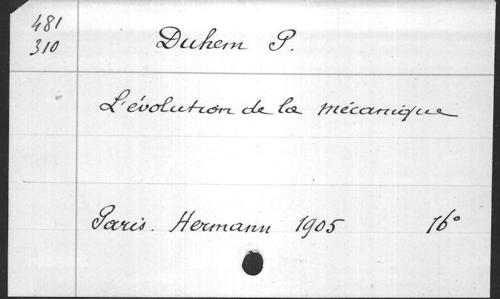 481
310
Duhem P.
L'évolution de la mécanique
Paris. Hermann 1905 16°